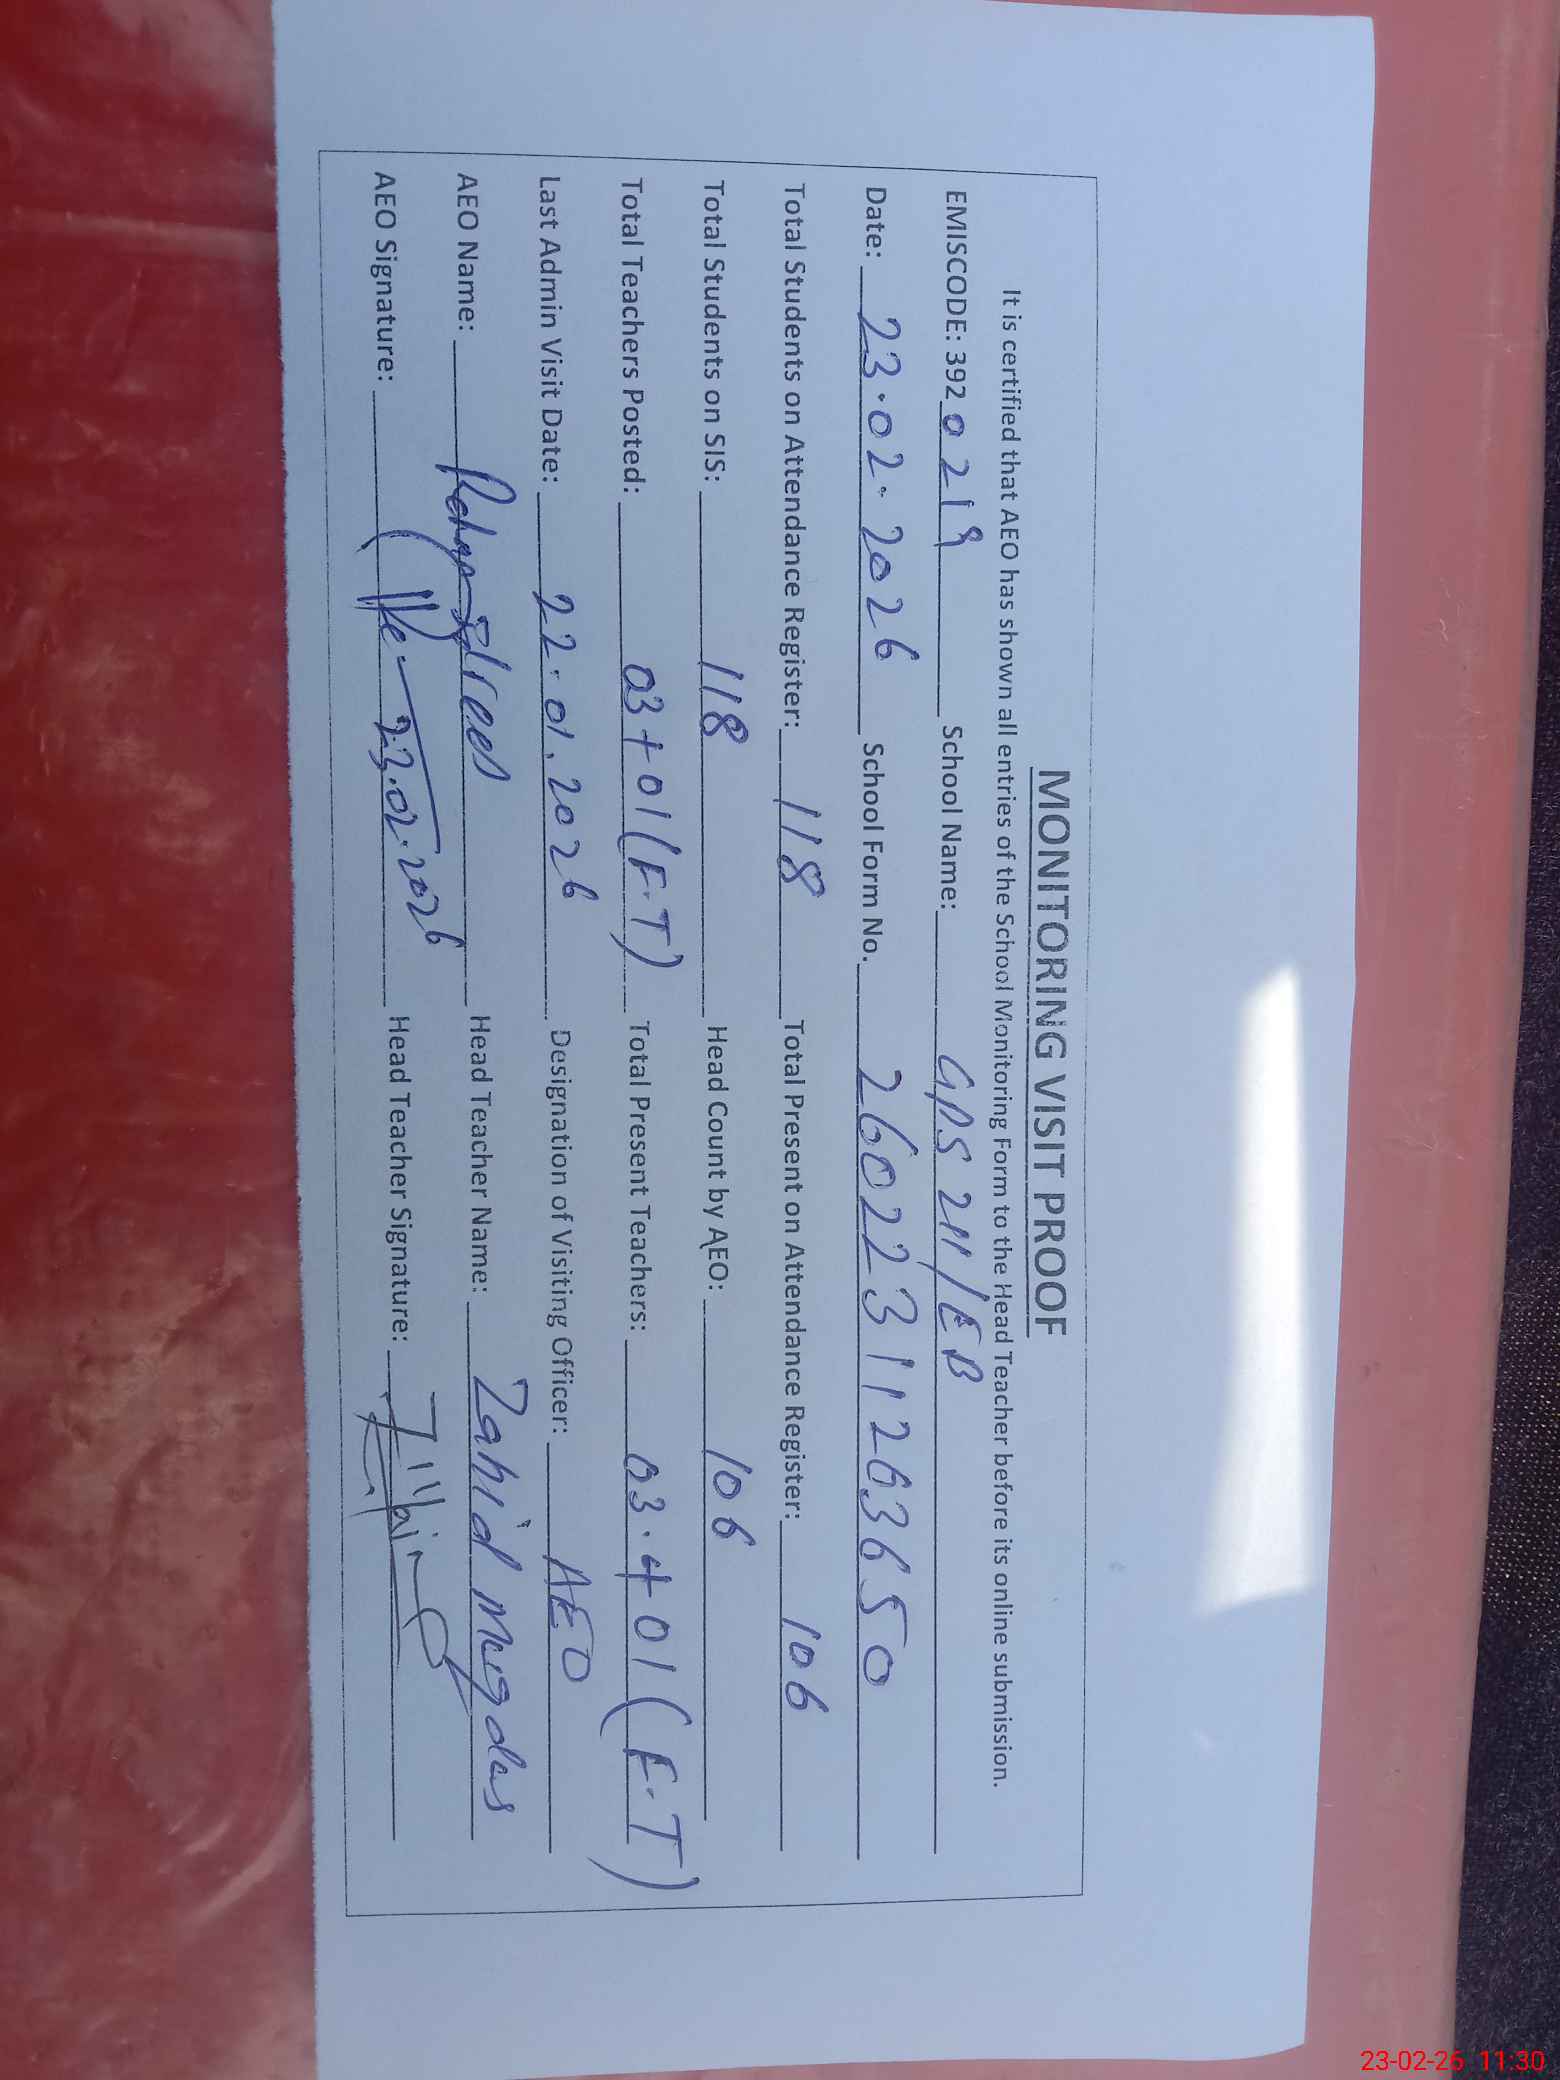 MONITORING VISIT PROOF
It is certified that AEO has shown all entries of the School Monitoring Form to the Head Teacher before its online submission.
EMISCODE: 392 0219 School Name: GPS 211/EB
Date: 23.02.2026 School Form No. 26022311263650
Total Students on Attendance Register: 118 Total Present on Attendance Register: 106
Total Students on SIS: 118 Head Count by AEO: 106
Total Teachers Posted: 03+01(F.T) Total Present Teachers: 03.+01(F.T)
Last Admin Visit Date: 22.01.2026 Designation of Visiting Officer: AEO
AEO Name: Head Teacher Name: Zahid
AEO Signature: 23.02.2026 Head Teacher Signature:
23-02-26 11:30